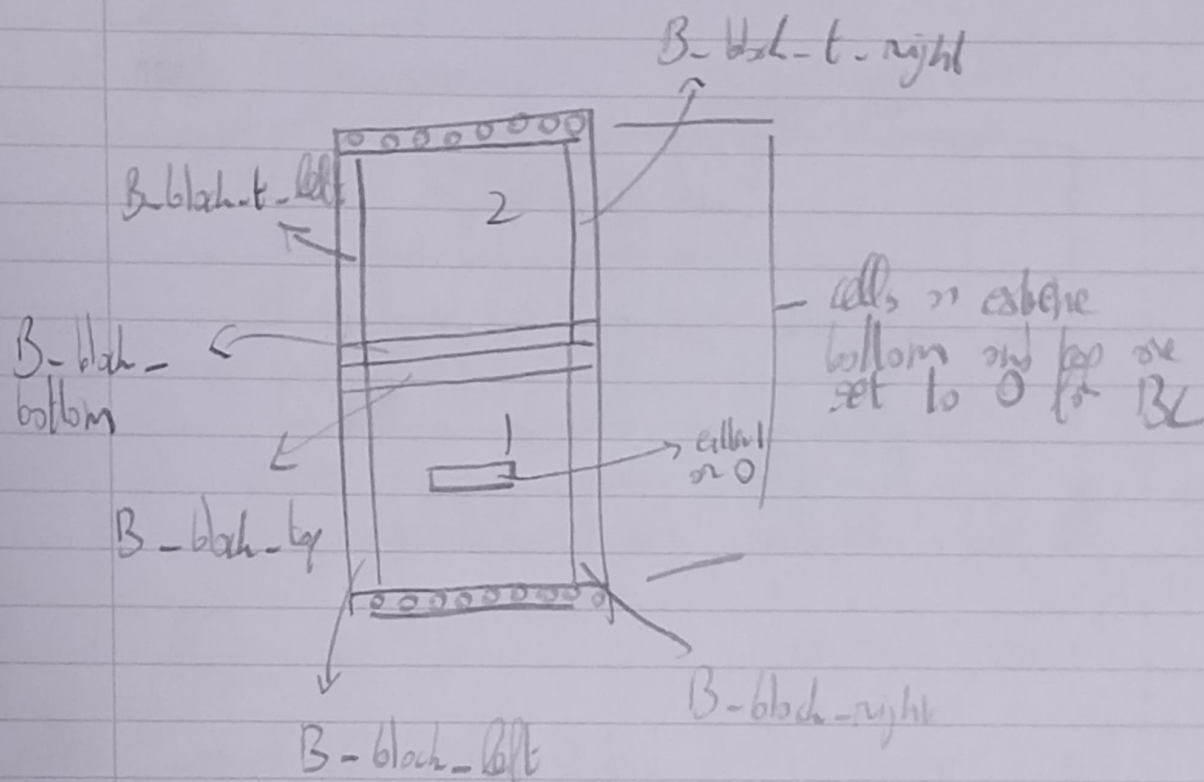 B_block_t_right
B_block_t_left
2
cells on extreme
bottom and top are
set to 0 for BC
B_block_
bottom
1
or 0
B_block_top
B_block_right
B_block_left